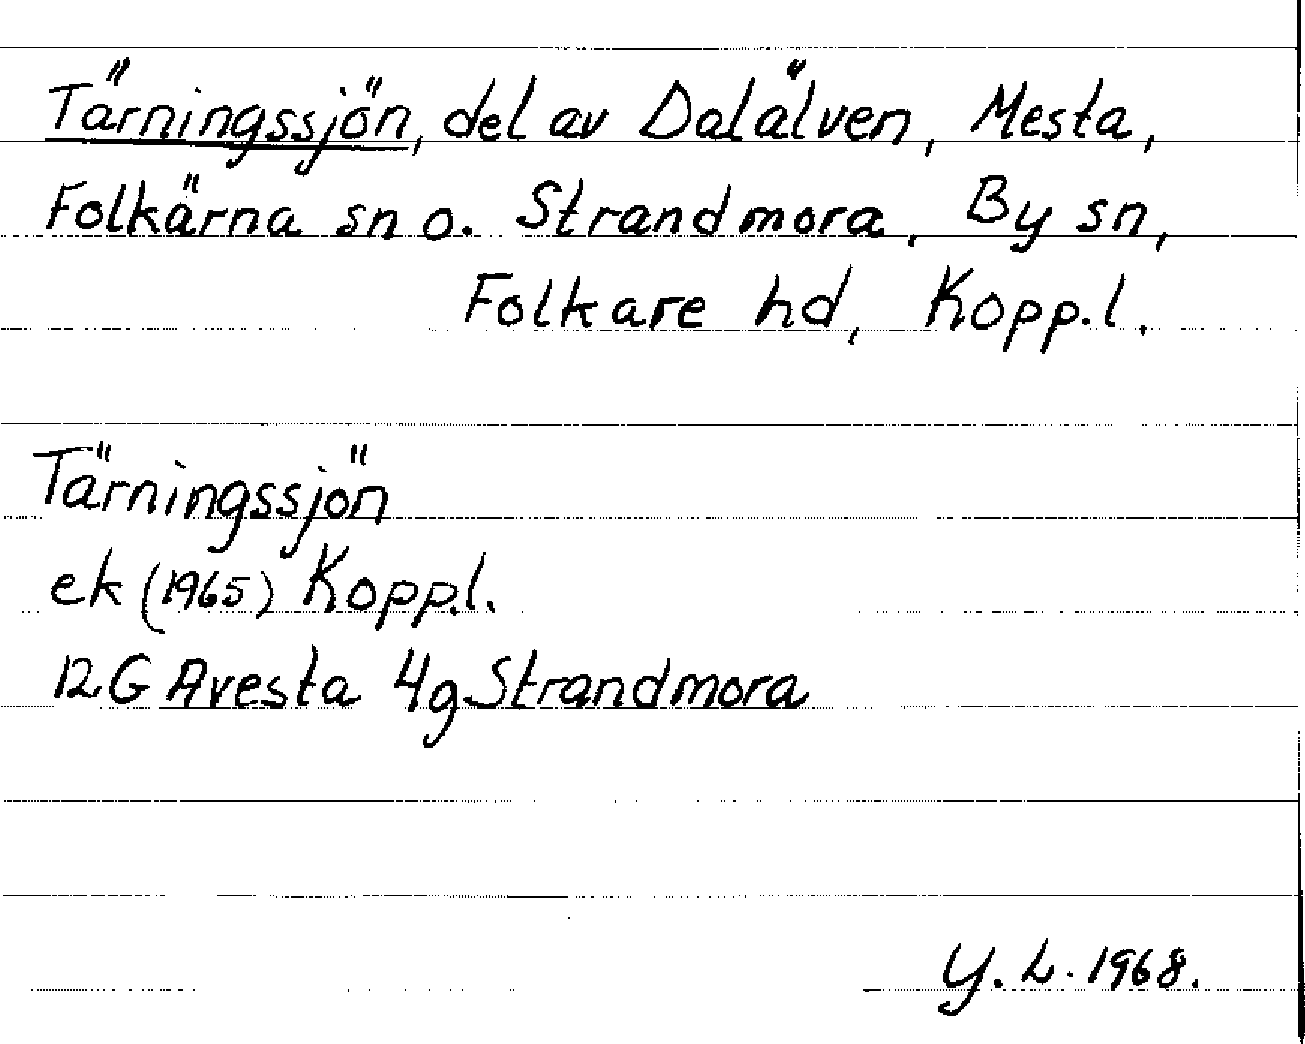 Tärningssjön, del av Dalälven, Mesta,
Folkärna sn o. Strandmora, By sn,
Folkare hd, Kopp.l.
Tärningssjön
ek (1965) Kopp.l.
12G Avesta 4g Strandmora
Y. L. 1968.